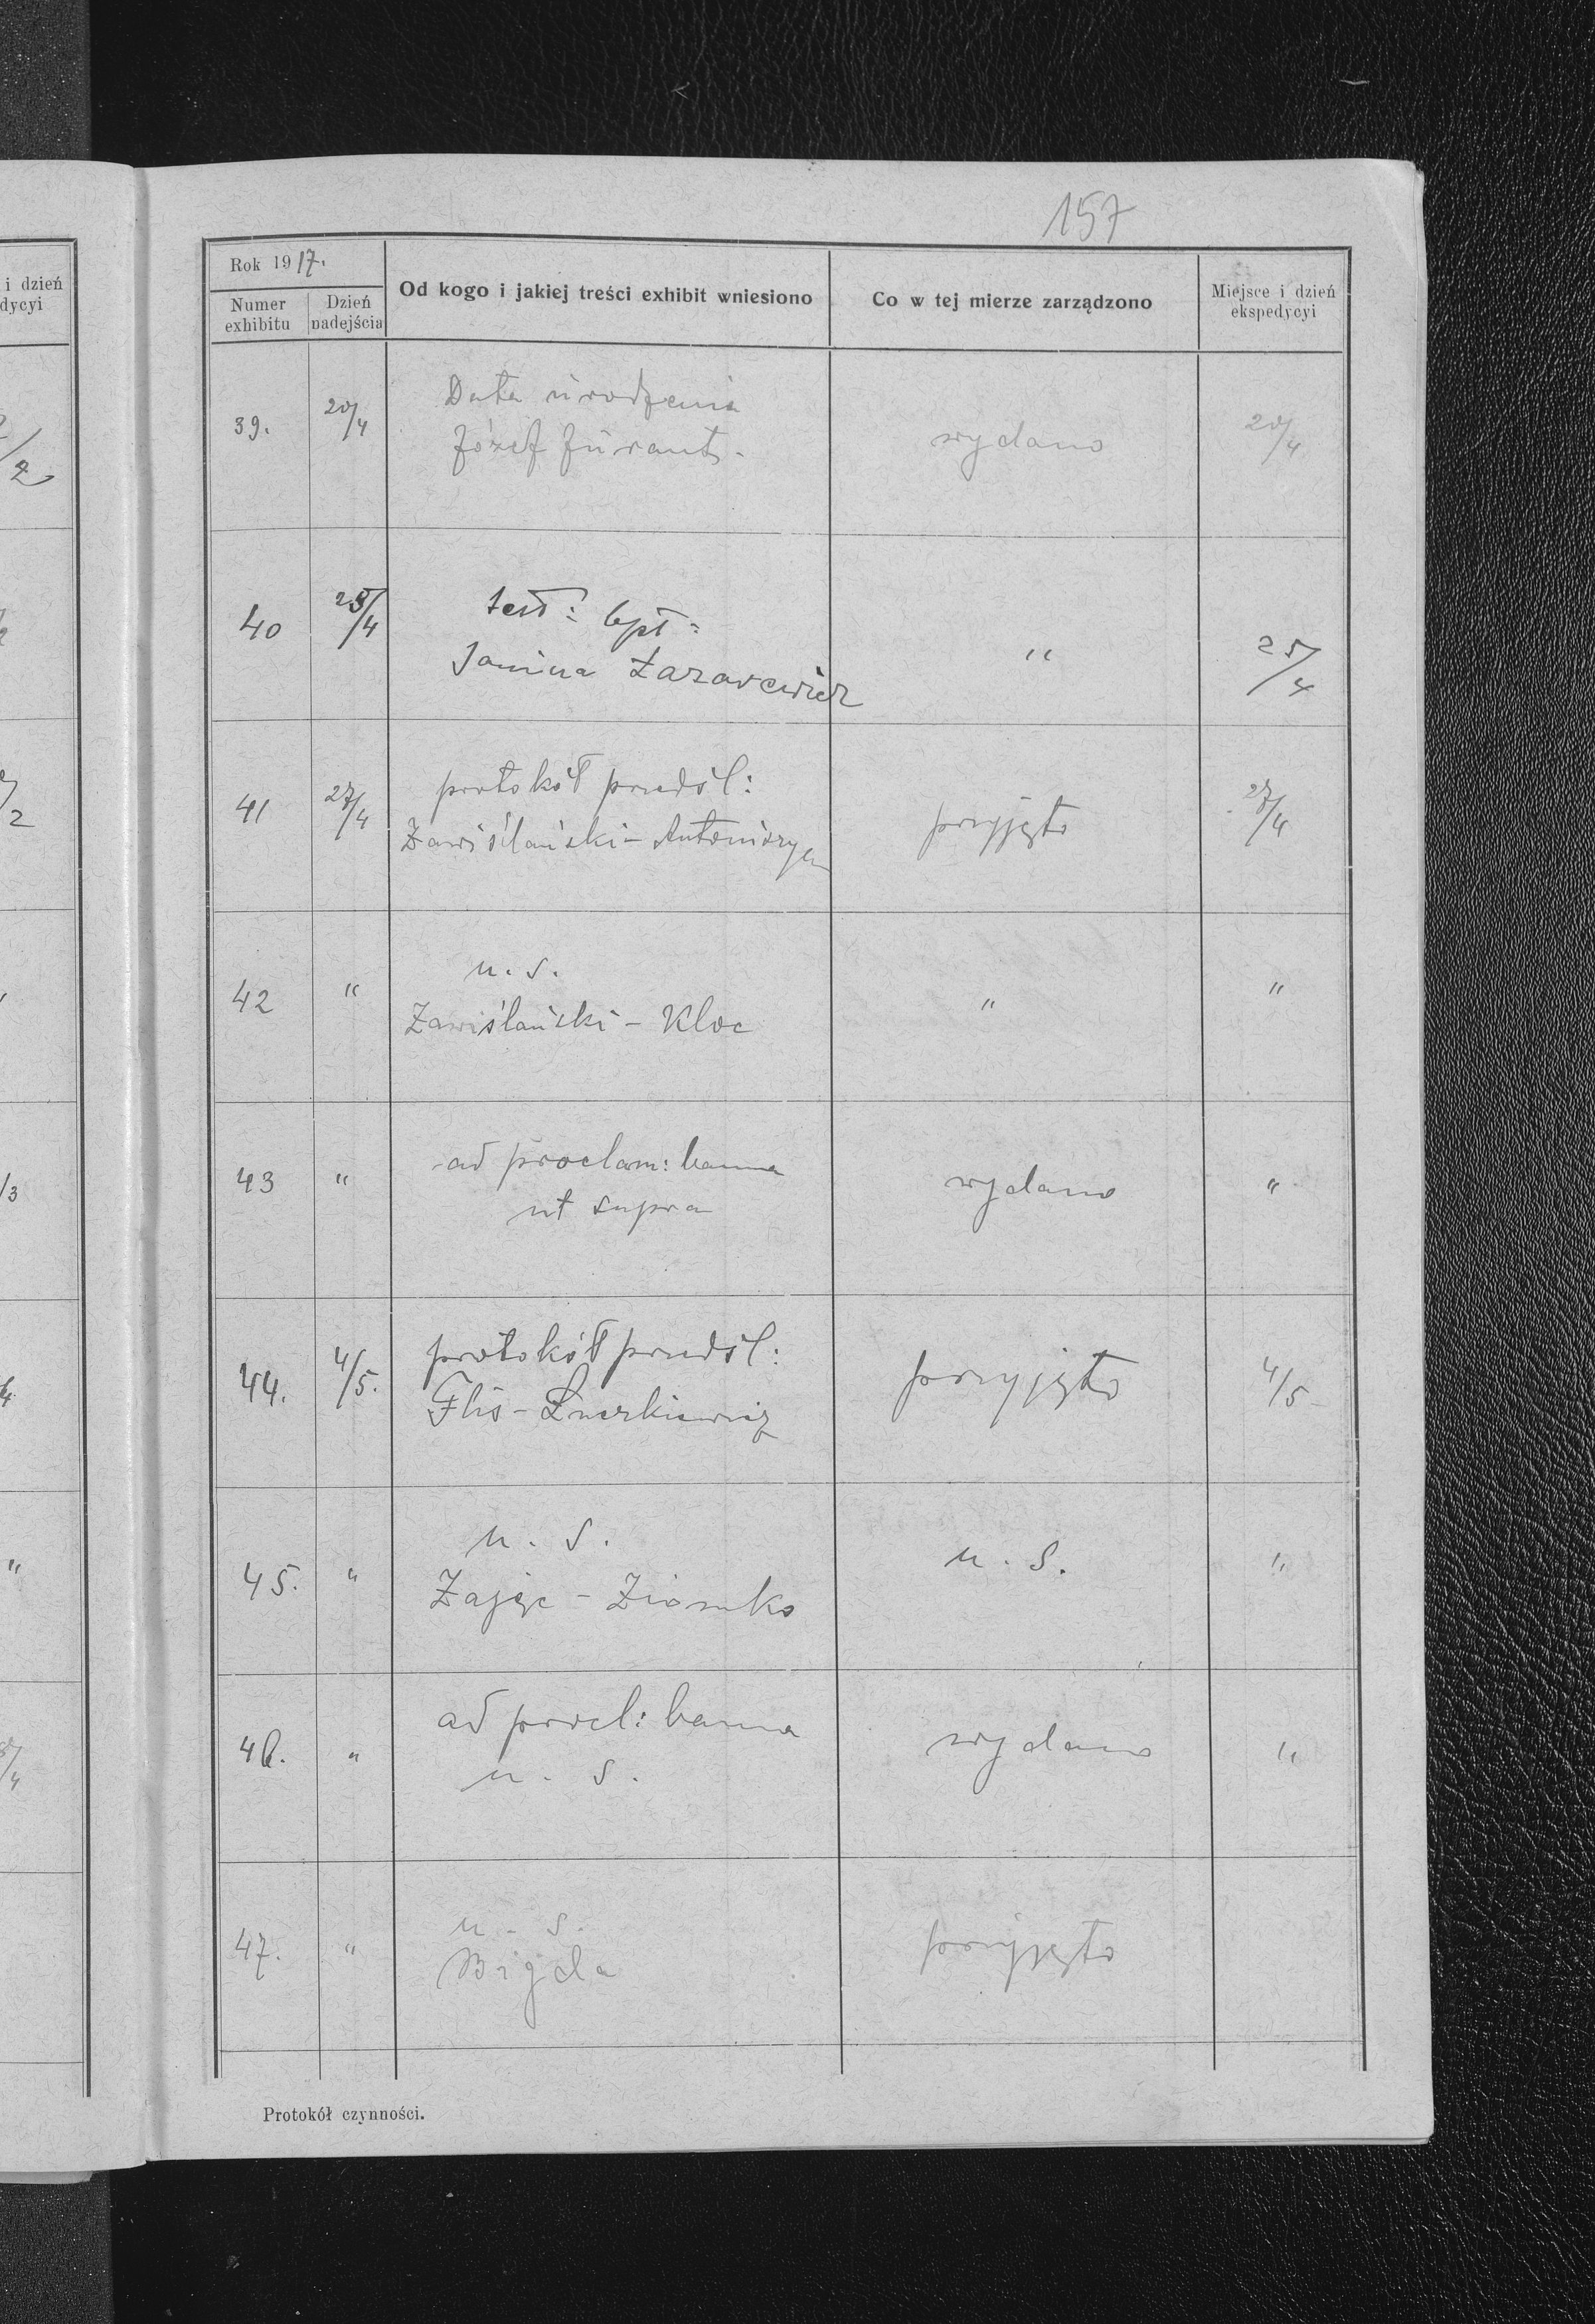 157
i dzień
dycyi
Rok 1917.
Numer exhibitu
Dzień nadejścia
Od kogo i jakiej treści exhibit wniesiono
Co w tej mierze zarządzono
Miejsce i dzień ekspedycyi
39. 20/4 Data urodzenia
Józef wydano 20/4
40 25/4 test: bpt:
Janina Łazarewicz " 25/4
41 27/4 protokół przedśl:
Zawiślański - przyjęto 27/4
42 " u. s.
Zawiślański - Kloc " "
43 " ad proclam: banna wydano "
ut supra
44. 4/5. protokół przedśl: przyjęto 4/5
Flis -
45. " u. s. u. s. "
Zając - Ziomko
46. " ad procl: banna wydano "
u. s.
47. " u. s. przyjęto
Bigda
Protokół czynności.